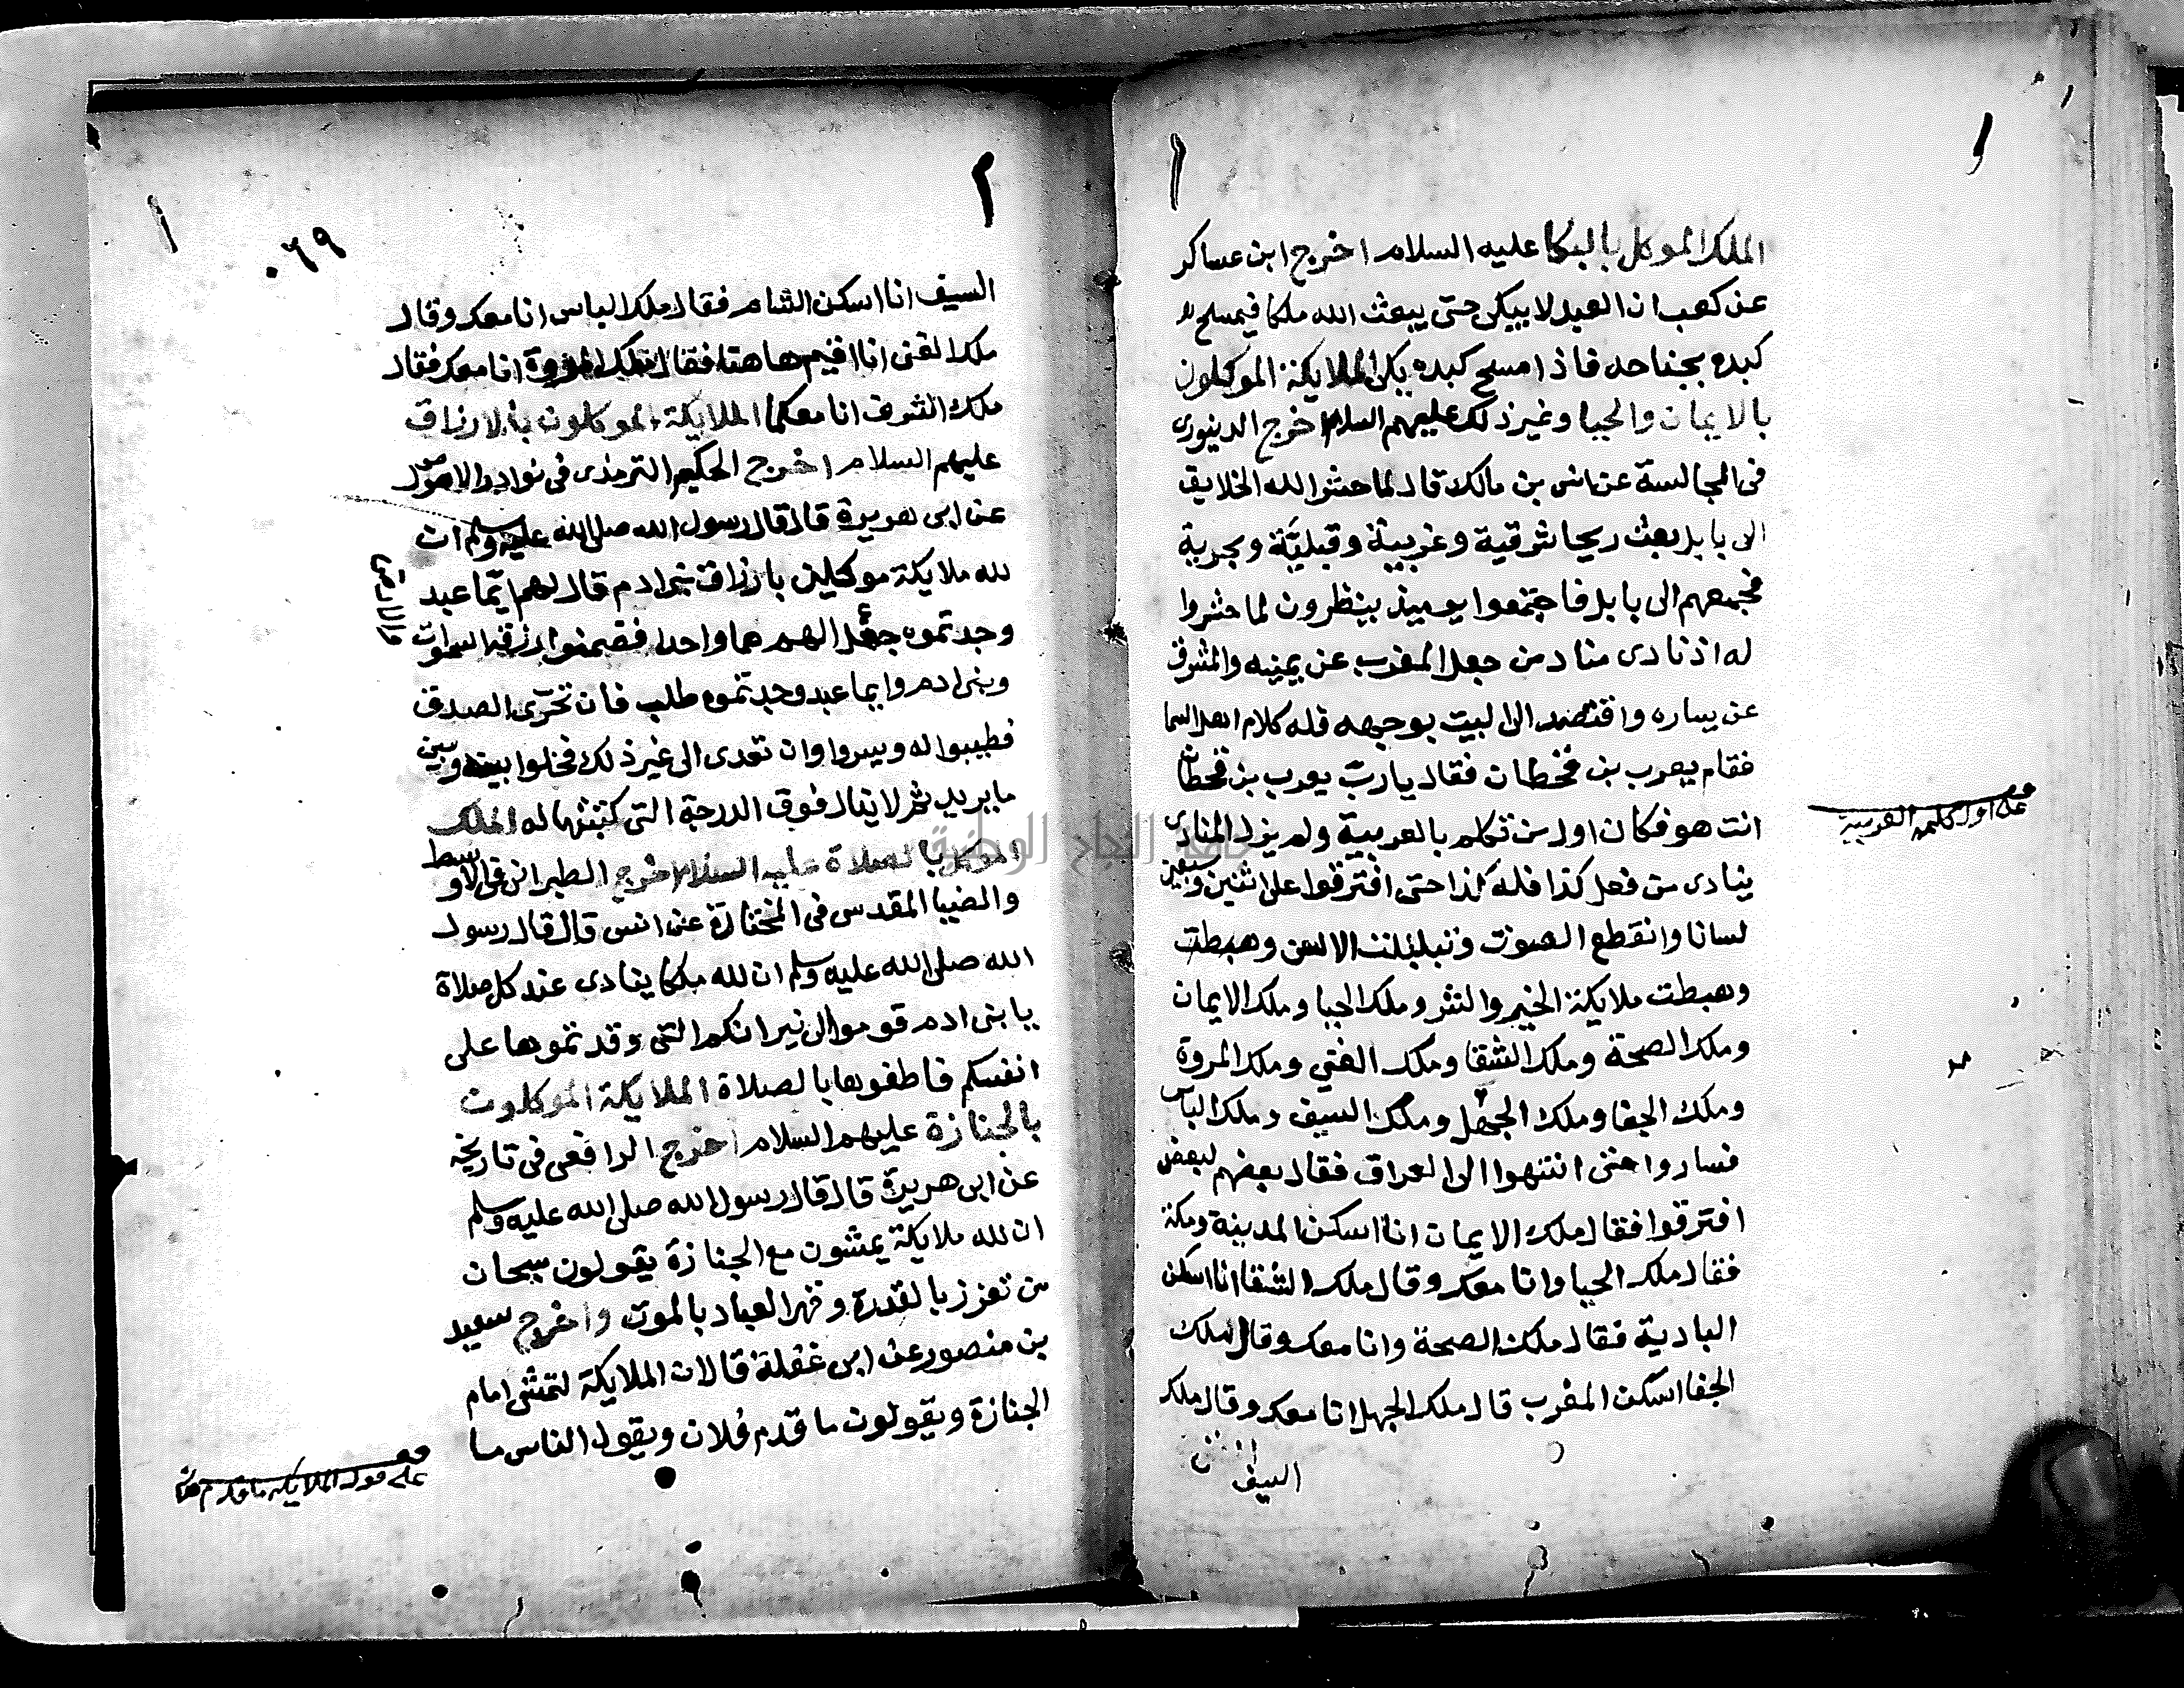 الملك الموكل بالبكا عليه السلام اخرج ابن عساكر
عن كعب ان العبد لا يبكى حتى يبعث الله ملكا فيمسح
كبده بجناحه فاذا مسح كبده بكى الملايكة الموكلون
بالايمان والحيا وغير ذلك عليهم السلام اخرج الدينورى
فى المجالسة عن انس بن مالك قال لما حشر الله الخلايق
الى بابل بعث ريحا شرقية وغربية وقبلية وبحرية
فجمعهم الى بابل فاجتمعوا يوميذ ينظرون لما حشروا
له اذ نادى مناد من جعل المغرب عن يمينه والمشرق
عن يساره واقتصد الى البيت بوجهه فله كلام اهل السما
فقام يعرب بن قحطان فقال يارب يعرب بن قحطان
انت هو فكان اول من تكلم بالعربية ولم يزل المنادى
ينادى من فعل كذا فله كذا حتى افترقوا على اثنين وسبعين
لسانا وانقطع الصوت وتبلبلت الالسن وهبطت
وهبطت ملايكة الخير والشر وملك الحيا وملك الايمان
وملك الصحة وملك الشقا وملك الغنى وملك المروة
وملك الجفا وملك الجهل وملك السيف وملك الباس
فساروا حتى انتهوا الى العراق فقال بعضهم لبعض
افترقوا فقال ملك الايمان انا اسكن المدينة ومكة
فقال ملك الحيا وانا معك وقال ملك الشقا انا اسكن
البادية فقال ملك الصحة وانا معك وقال ملك
الجفا اسكن المغرب قال ملك الجهل انا معك وقال ملك
السيف
على اول كلمة العربية
٢
٠٦٩
السيف انا اسكن الشام فقال ملك الباس انا معك وقال
ملك الغنى انا اقيم هاهنا فقال ملك المروة انا معك فقال
ملك الشرف انا معكما الملايكة الموكلون بالارزاق
عليهم السلام اخرج الحكيم الترمذى فى نوادر الاصول
عن ابى هريرة قال قال رسول الله صلى الله عليه وسلم ان
لله ملايكة موكلين بارزاق بنى ادم قال لهم ايما عبد
وجدتموه جعل الهم هما واحدا فضمنوا رزقه السموات
وبنى ادم وايما عبد وجدتموه طلب فان تحرى الصدق
فطيبوا له ويسروا وان تعدى الى غير ذلك فخلوا بينه وبين
ما يريد ثم لا ينال فوق الدرجة التى كتبتها له الملك
الموكل بالصلاة عليه السلام اخرج الطبرانى فى الاوسط
والضيا المقدسى فى المختارة عن انس قال قال رسول
الله صلى الله عليه وسلم ان لله ملكا ينادى عند كل صلاة
يا بنى ادم قوموا الى نيرانكم التى وقدتموها على
انفسكم فاطفوها بالصلاة الملايكة الموكلون
بالجنازة عليهم السلام اخرج الرافعى فى تاريخه
عن ابى هريرة قال قال رسول الله صلى الله عليه وسلم
ان لله ملايكة يمشون مع الجنازة يقولون سبحان
من تعزز بالقدرة وقهر العباد بالموت واخرج سعيد
بن منصور عن ابن غفلة قال ان الملايكة لتمشى امام
الجنازة ويقولون ما قدم فلان ويقول الناس ما
على قول الملايكة ما قدم فلان
جامعة النجاح الوطنية